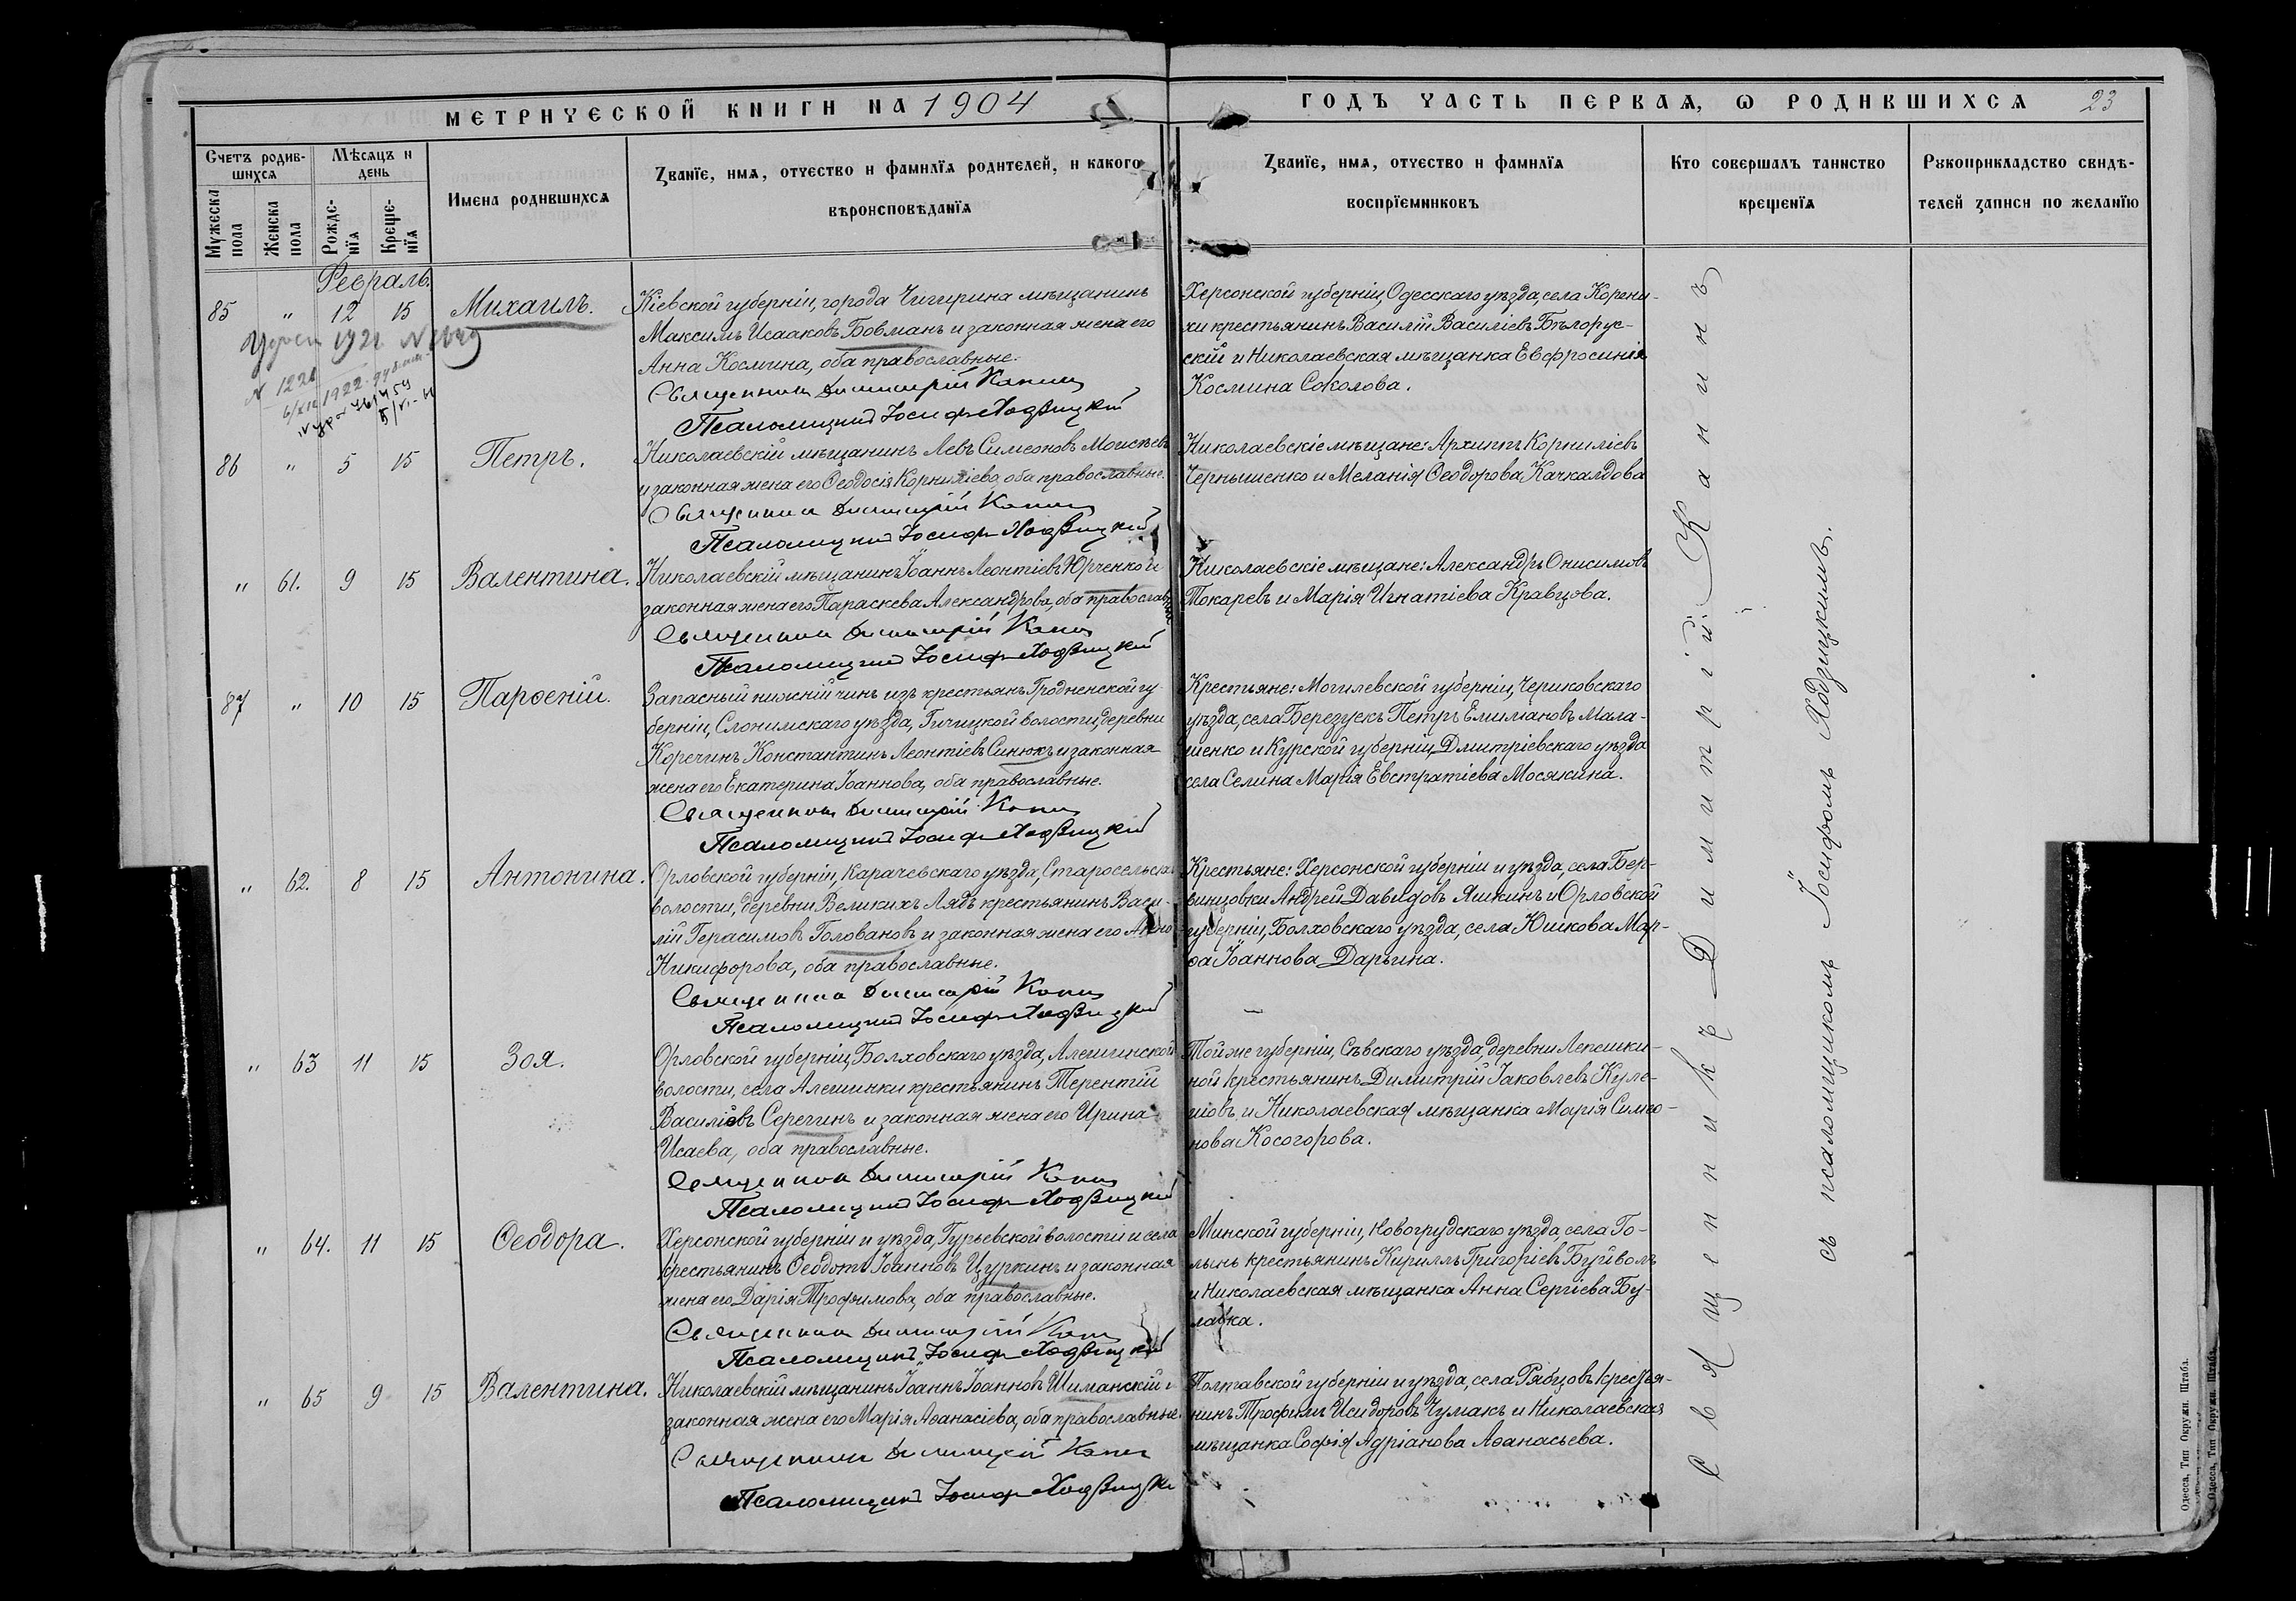 МЕТРИЧЕСКОЙ КНИГИ НА 1904
ГОДЪ ЧАСТЬ ПЕРВАЯ, Ѡ РОДИВШИХСЯ 23
Счетъ родив-
шихся
Мѣсяцъ и
день
Мужеска
пола
Женска
пола
Рожде-
нїя
Креще-
нїя
Имена родившихся
Званїе, имя, отчество и фамилїя родителей, и какого
вѣроисповѣданїя
Званїе, имя, отчество и фамилїя
воспрїемниковъ
Кто совершалъ таинство
крещенїя
Рукоприкладство свидѣ-
телей записи по желанїю
Февраль.
85 " 12 15 Михаилъ.
Кіевской губерніи, города Чигирина мѣщанинъ
Максимъ Исааковъ Бовманъ и законная жена его
Анна Космина, оба православные.
Священник Димитрій
Псаломщикъ Іосифъ Ходзицкій
Херсонской губерніи, Одесскаго уѣзда, села Корени-
хи крестьянинъ Василій Василіевъ Бѣлорус-
скій и Николаевская мѣщанка Евфросинія
Космина Соколова.
1921
1922
86 " 5 15 Петръ.
Николаевскій мѣщанинъ Левъ Симеоновъ Моисѣевъ
и законная жена его Ѳеодосія Корниліева, оба православные.
Священник Димитрій
Псаломщикъ Іосифъ Ходзицкій
Николаевскіе мѣщане: Архиппъ Корниліевъ
Чернышенко и Меланія Ѳеодорова Качкалдова
" 61. 9 15 Валентина.
Николаевскій мѣщанинъ Іоаннъ Леонтіевъ Юрченко и
законная жена его Параскева Александрова, оба православные
Священник Димитрій
Псаломщикъ Іосифъ Ходзицкій
Николаевскіе мѣщане: Александръ Онисимовъ
Токаревъ и Марія Игнатіева Кравцова.
87 " 10 15 Парѳеній.
Запасный нижній чинъ изъ крестьянъ Гродненской гу-
берніи, Слонимскаго уѣзда, волости, деревни
Коречинъ Константинъ Леонтіевъ Синюкъ и законная
жена его Екатерина Іоаннова, оба православные.
Священник Димитрій
Псаломщикъ Іосифъ Ходзицкій
Крестьяне: Могилевской губерніи, Чериковскаго
уѣзда, села Петръ Мала-
шенко и Курской губерніи, Дмитріевскаго уѣзда
села Селина Марія Евстратіева Мосякина.
" 62. 8 15 Антонина.
Орловской губерніи, Карачевскаго уѣзда, Старосельской
волости, деревни Великихъ Лядъ крестьянинъ Васи-
лій Герасимовъ Головановъ и законная жена его Анна
Никифорова, оба православные.
Священник Димитрій
Псаломщикъ Іосифъ Ходзицкій
Крестьяне: Херсонской губерніи и уѣзда, села Бер-
винцовки Андрей Давидовъ Яшкинъ и Орловской
губерніи, Болховскаго уѣзда, села Юшкова Мар-
ѳа Іоаннова Дарьина.
" 63 11 15 Зоя.
Орловской губерніи, Болховскаго уѣзда, Алешинской
волости, села Алешинки крестьянинъ Терентій
Василіевъ Серегинъ и законная жена его Ирина
Исаева, оба православные.
Священник Димитрій
Псаломщикъ Іосифъ Ходзицкій
Той же губерніи, Сѣвскаго уѣзда, деревни Лепешки-
ной крестьянинъ Димитрій Іаковлевъ Куле-
шовъ и Николаевская мѣщанка Марія Симео-
нова Косогорова.
" 64. 11 15 Ѳеодора.
Херсонской губерніи и уѣзда, Гурьевской волости и села
крестьянинъ Ѳеодотъ Іоанновъ Цуркинъ и законная
жена его Дарія Трофимова, оба православные.
Священник Димитрій
Псаломщикъ Іосифъ Ходзицкій
Минской губерніи, Новогрудскаго уѣзда, села Го-
лынь крестьянинъ Кириллъ Григоріевъ Буйволъ
и Николаевская мѣщанка Анна Сергіева Бу-
лавка.
" 65 9 15 Валентина.
Николаевскій мѣщанинъ Іоаннъ Іоанновъ Шиманскій и
законная жена его Марія Аѳанасіева, оба православные.
Священник Димитрій
Псаломщикъ Іосифъ Ходзицкій
Полтавской губерніи и уѣзда, села Рябцовъ крестья-
нинъ Трофимъ Исидоровъ Чумакъ и Николаевская
мѣщанка Софія Адріанова Аѳанасьева.
Священникъ Димитрій Канинъ
съ псаломщикомъ Іосифомъ Ходзицкимъ.
Одесса, Тип. Окружн. Штаба.
Одесса, Тип. Окружн. Штаба.